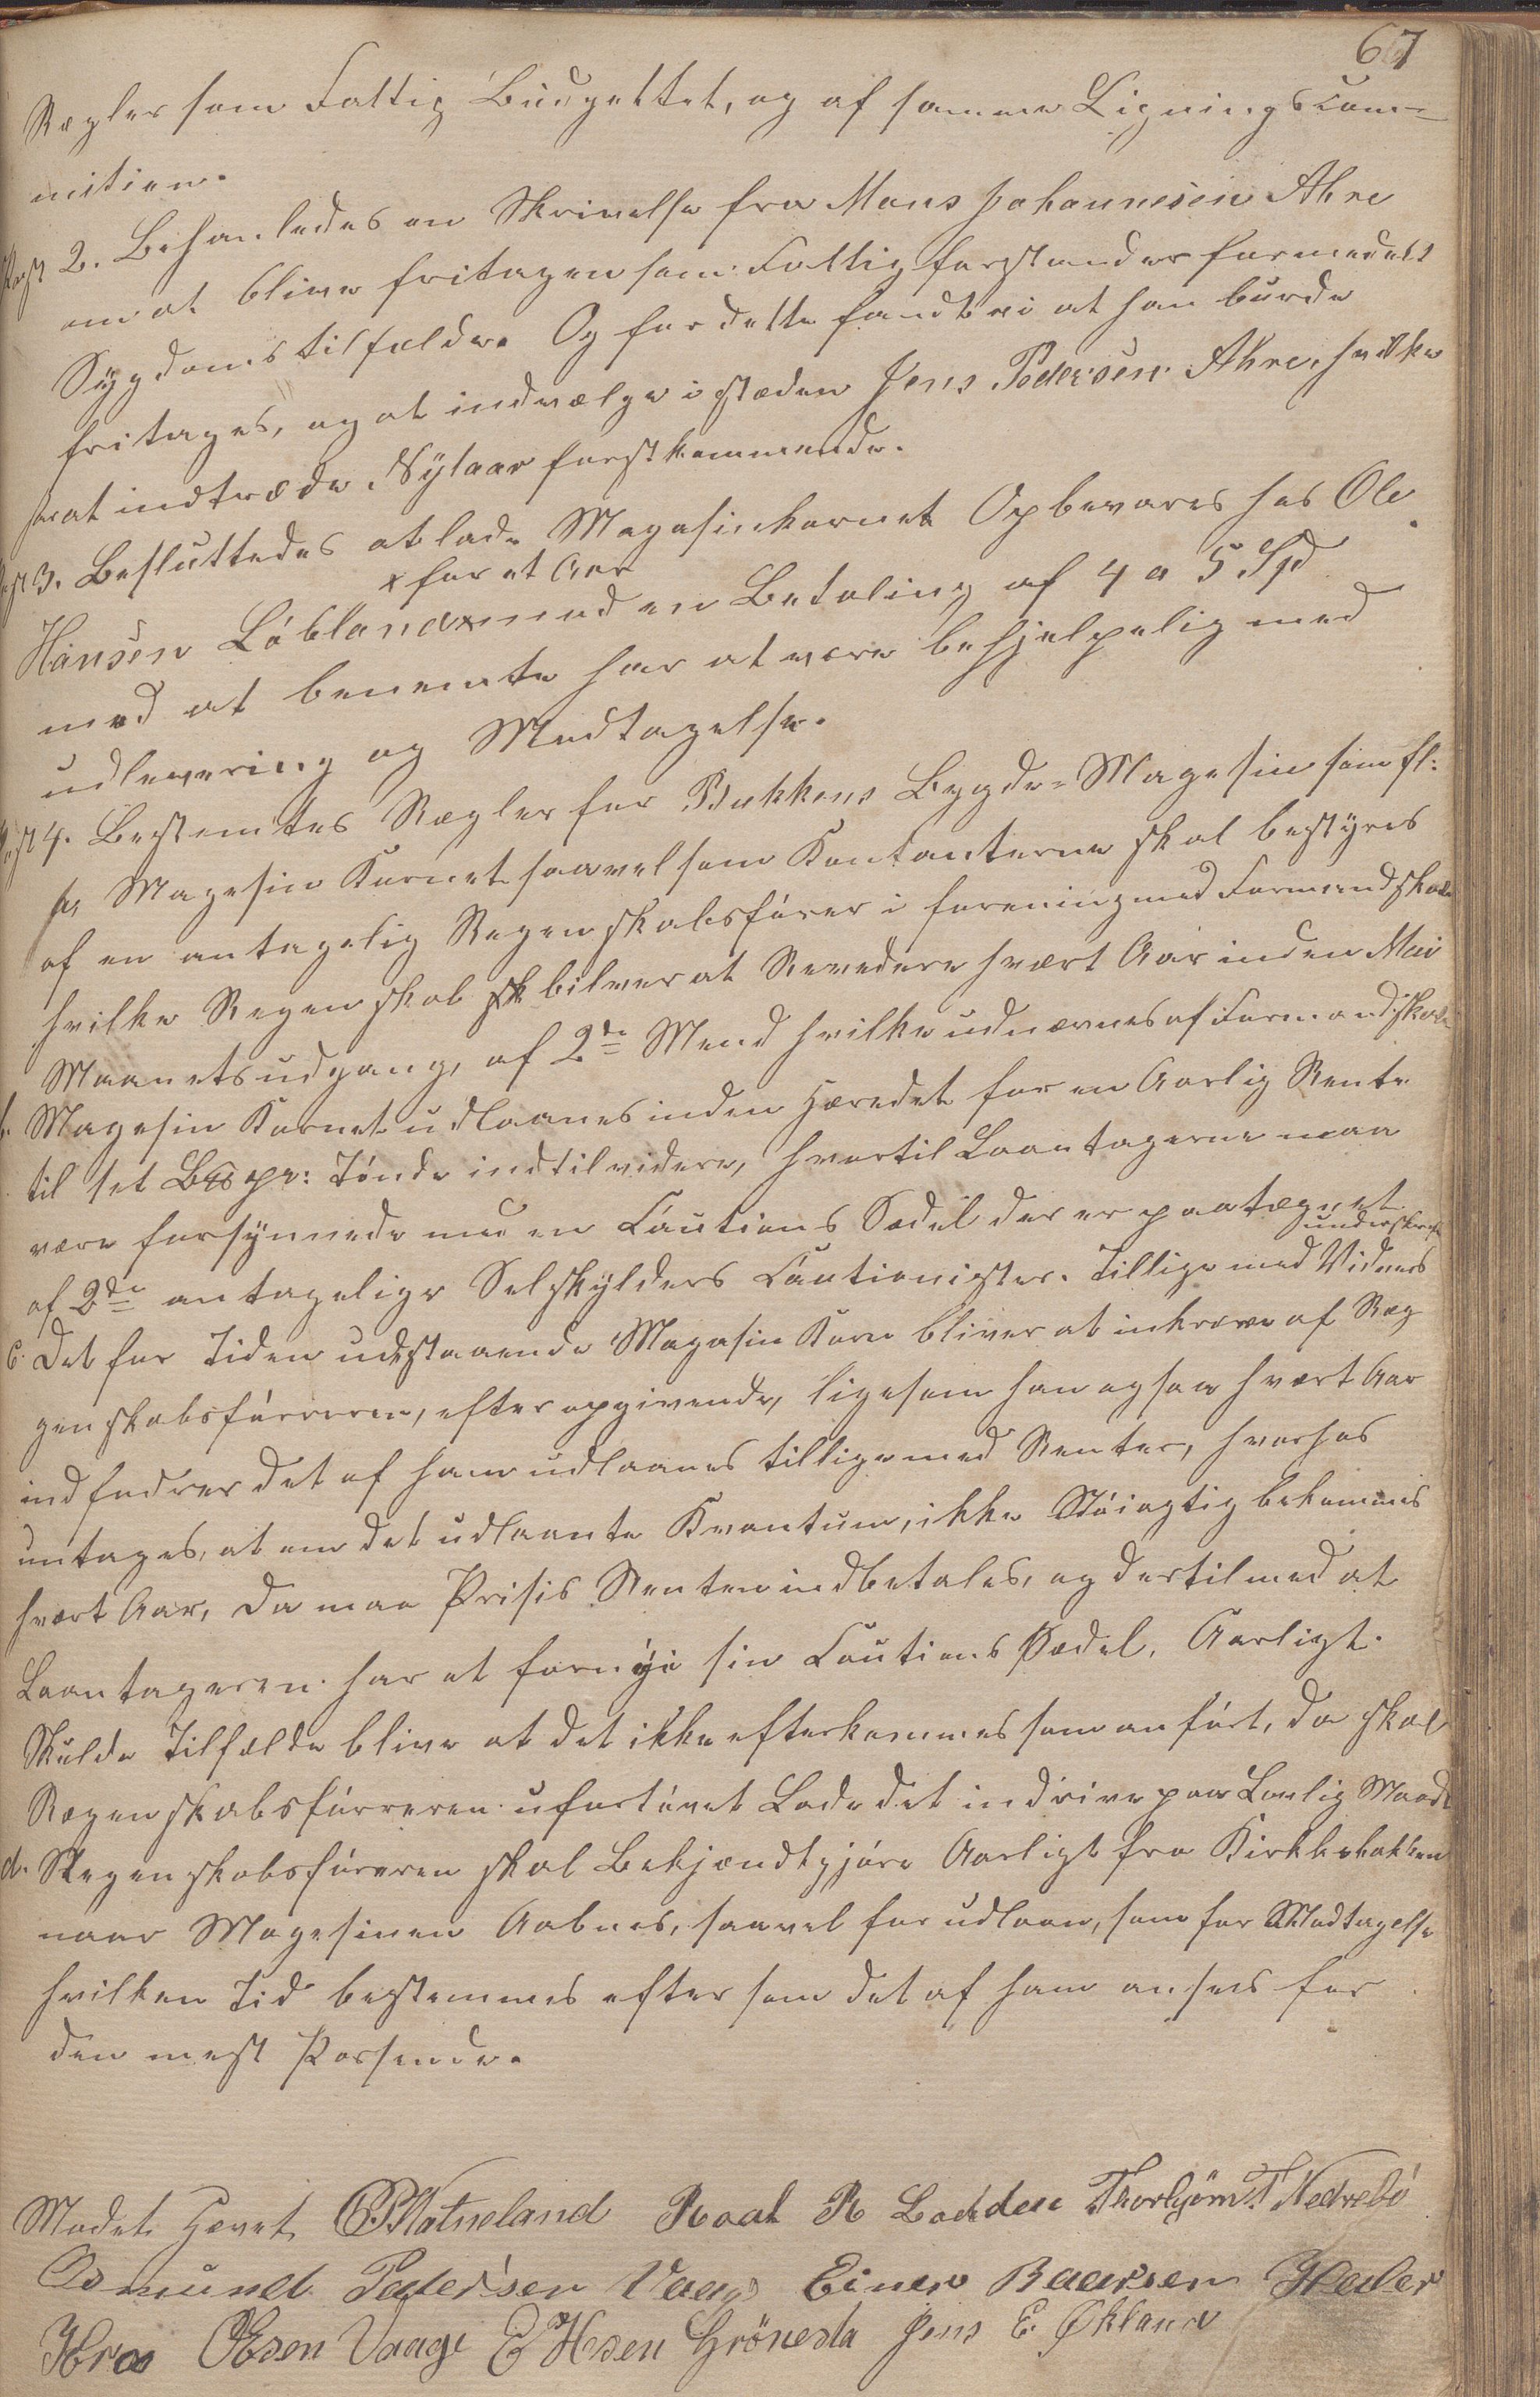 67
Regler som Fattig Budgettet, og af samme Lignings Com-
mition.
Post 2. Behanledes en Skrivelse fra Mons Johannesen Ahre
om at blive fritagen som Fattigforstander formedelst
Sygdoms tilfælde. Og for dette fandt vi at han burde
fritages, og at indvælge i stæden Jens Pedersen Ahre, hvilke
har at indtræde Nytaar førstkommende.
Post 3. Besluttedes at lade Magasinkornet Opbevares hos Ole
x for et Aar
Hansen Løbland x med en Betaling af 4 a 5 Spd
med at benemte har at være behjelpelig med
udlevering og Modtagelse.
Post 4. Bestemtes Regler for Bukkens Bygde-Magesin som fl:
a, Magesin Kornet saavelsom Kontanterne skal bestyres
af en antagelig Regenskabsfører i forening med Formandskabet
hvilke Regenskab bliver at Revedere hvært Aar inden Mai
Maanets udgang, af 2de Mend hvilke udnævnes af Formandskabet
b. Magesin Kornet udlaanes inden Hæredet for en Aarlig Rente
til sex pr: Tønde indtil videre, hvortil Laantagerne maa
være forsynnede med en Cautions Sedel der er paategnet
underskreft
af 2de antagelige Selskylders Cautionister. Tillige med Vidners
c. Det for Tiden udestaaende Magasin Korn bliver at inkræve af Reg
genskabsføreren, efter opgivende, ligesom han ogsaa hvært Aar
indfodrer det af ham udlaanes tilligemed Renter, hvorhos
untages, at om det udlaante Kvantum, ikke Nøiagtig bekommes
hvært Aar, da maa Prisis Renten indbetales, og dertil med at
Laantageren har at fornyi sin Cautions Sædel, Aarligt.
Skulde Tilfælde blive at det ikke efterkommes som anført, da skal
Regenskabsføreren ufortøvet Lade det indrive paa Lovlig Maade
d. Regenskabsføreren skal Bekjendtgjøre Aarligt fra Kirkebakken
naar Magesinen Aabnes, saavel for udlaan, som for Modtagelse
hvilken Tid bestemmes efter som det af ham anses for
den mest Passende.
Mødet Hævet Natneland Roal R Lodden Thorbjörn T Nedrebö
Osmund Pedersen Vaage Einer Baarsen Heder
Olsen Vaage E Hesen Grönesta Jens E. Økland